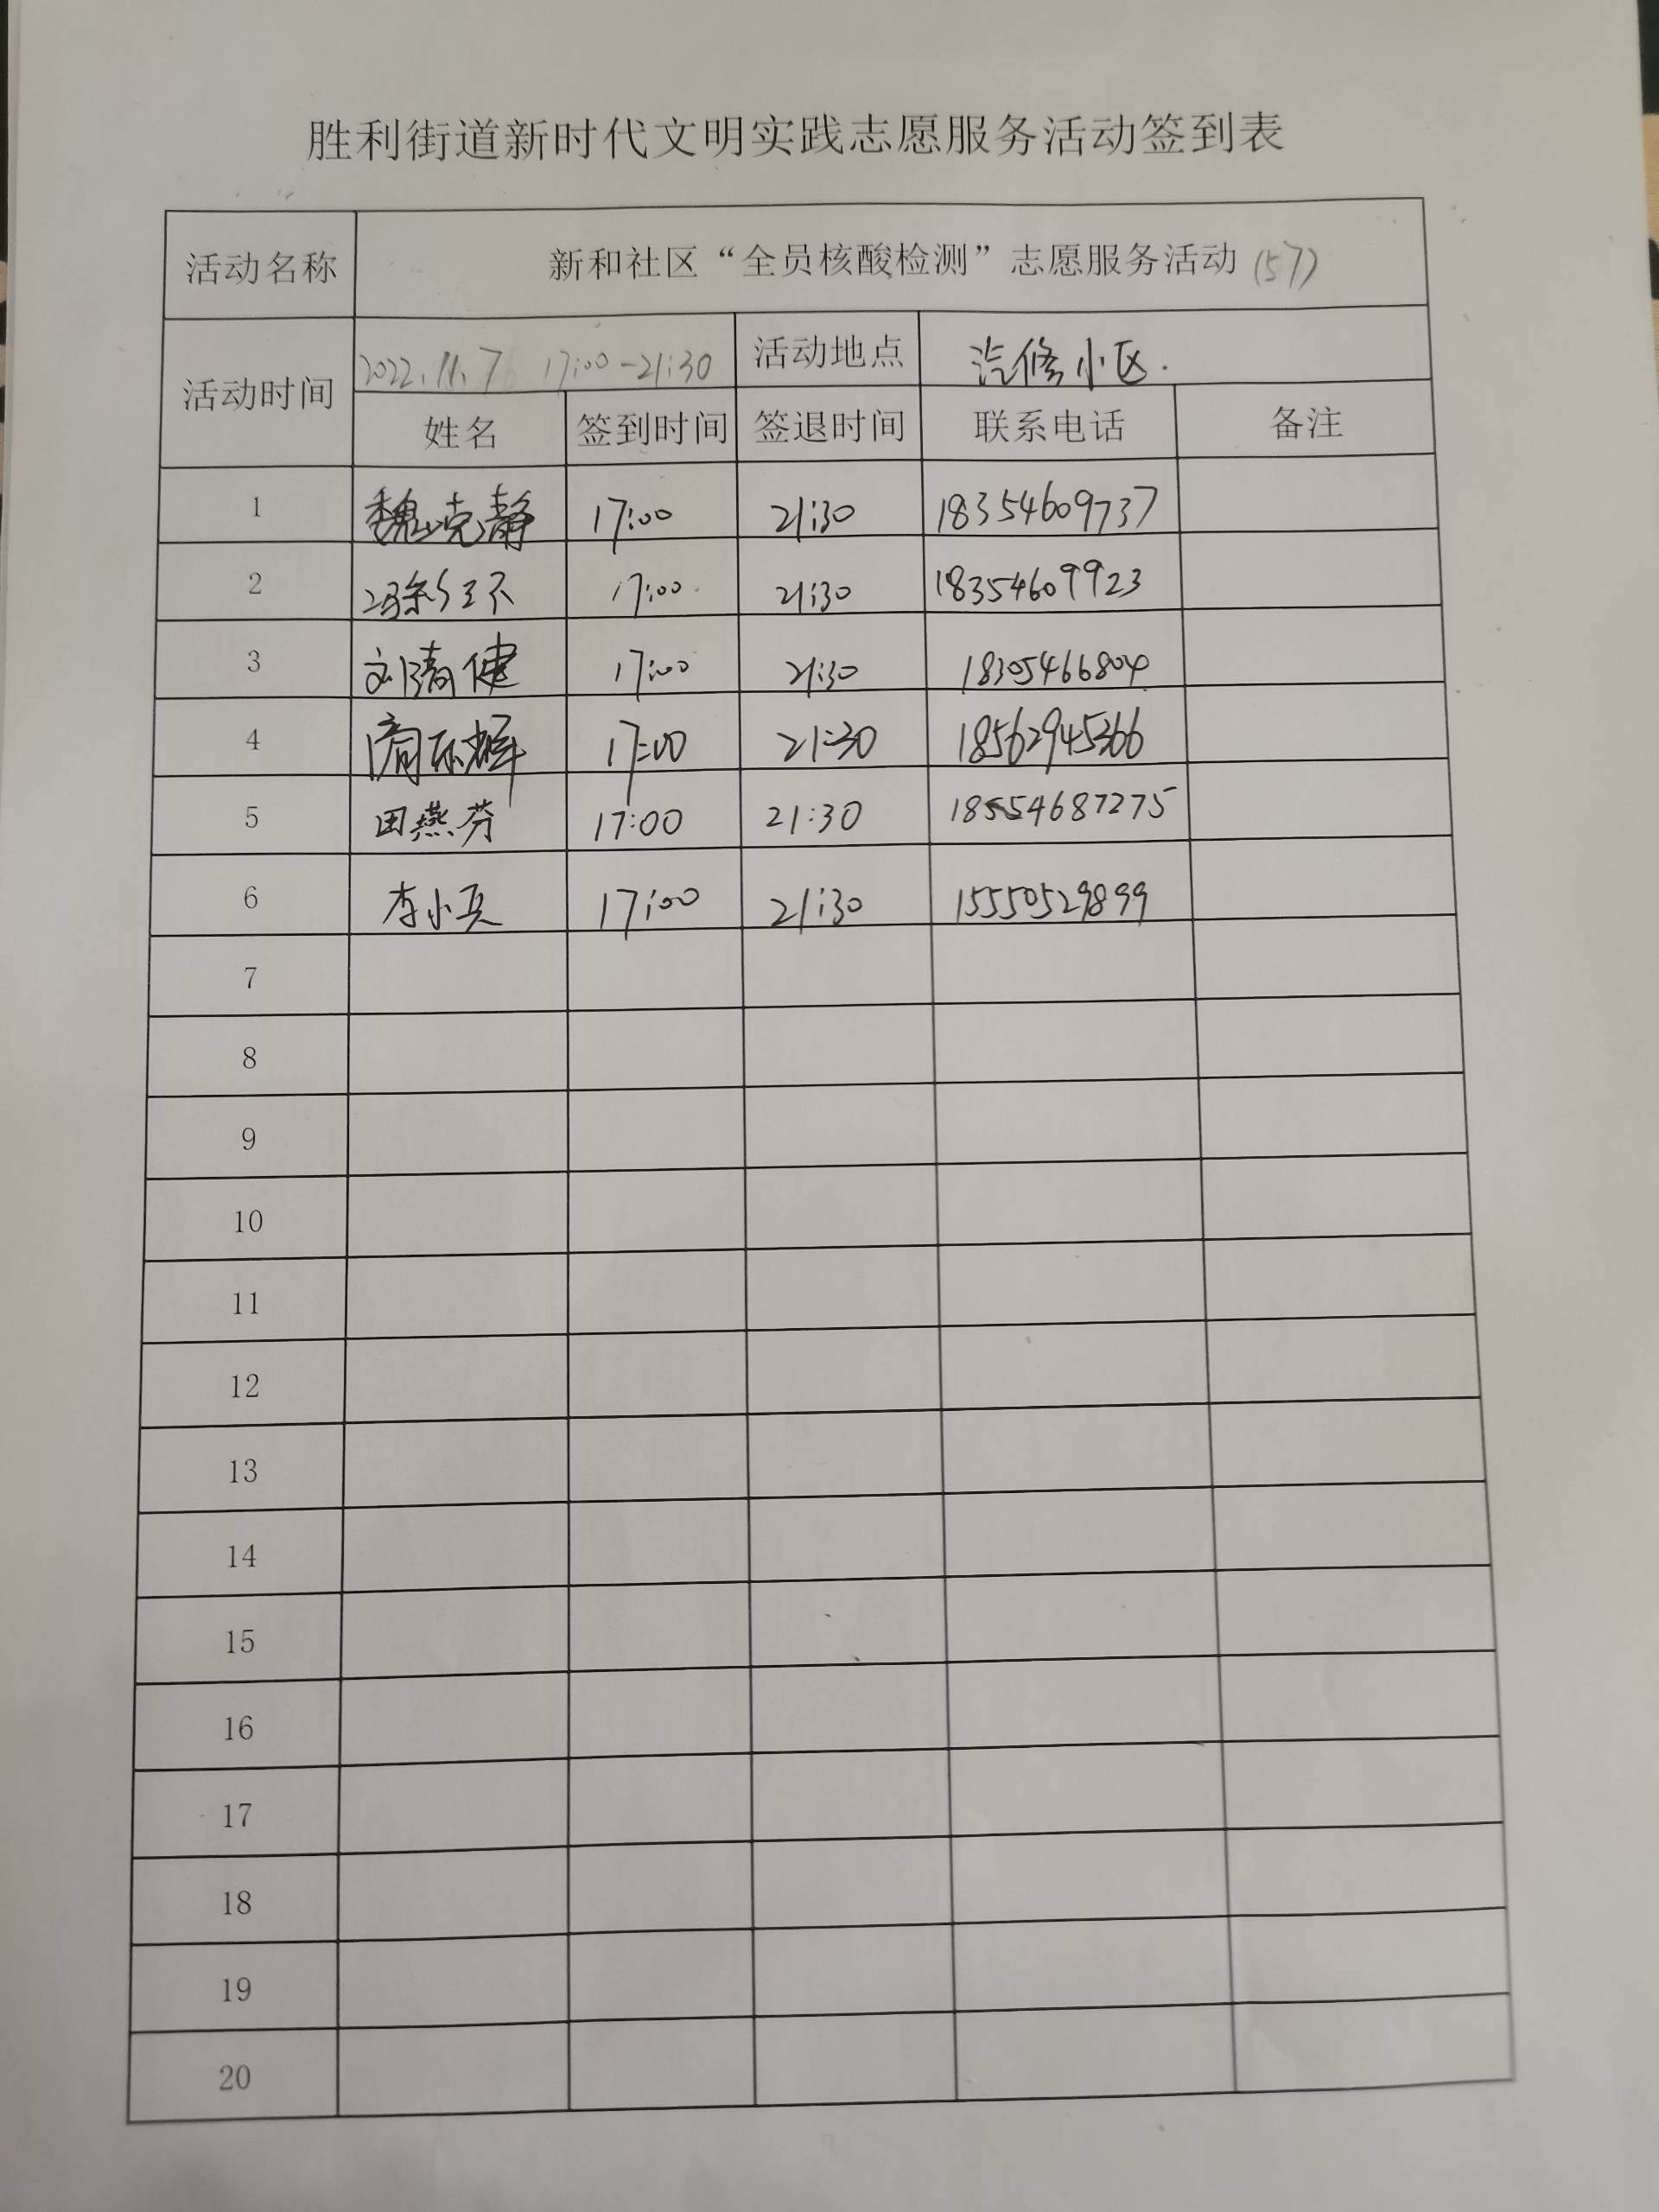 胜利街道新时代文明实践志愿服务活动签到表
活动名称 新和社区“全员核酸检测”志愿服务活动(57)
活动时间 2022.11.7 17:00-21:30 活动地点 汽修小区.
姓名 签到时间 签退时间 联系电话 备注
1 魏克静 17:00 21:30 18354609737
2 17:00 21:30 18354609923
3 刘清健 17:00 21:30 18305466804
4 17:00 21:30 18562945366
5 田燕芬 17:00 21:30 18554687275
6 李小兵 17:00 21:30 15550529899
7
8
9
10
11
12
13
14
15
16
17
18
19
20